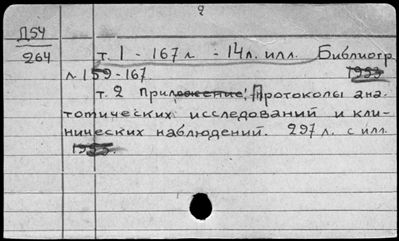 2
Д54
264
т. 1 - 167 л. - 14 л. илл. Библиогр
л 159-167 1953
т. 2 Приложение: Протоколы ана-
томических исследований и кли-
нических наблюдений. 297 л. с илл.
1953.